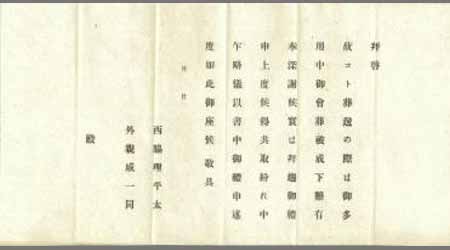 拜啓
故コト葬送の際は御多
用中御會葬被成下難有
奉深謝候實は拜趨御禮
申上度候得共取紛れ中
乍略儀以書中御禮申述
度如此御座候 敬具
月 日
西脇理平太
外親戚一同
殿